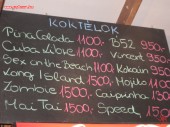 KOKTÉLOK
Pina Colada 1100,- B52 950,-
Cuba Libre 1100,- 950,-
Sex on the Beach 1100,- Kokain 950,-
Long Island 1500,- Mojito 1100,-
Zombie 1500,-
Mai Tai 1500,- Speed